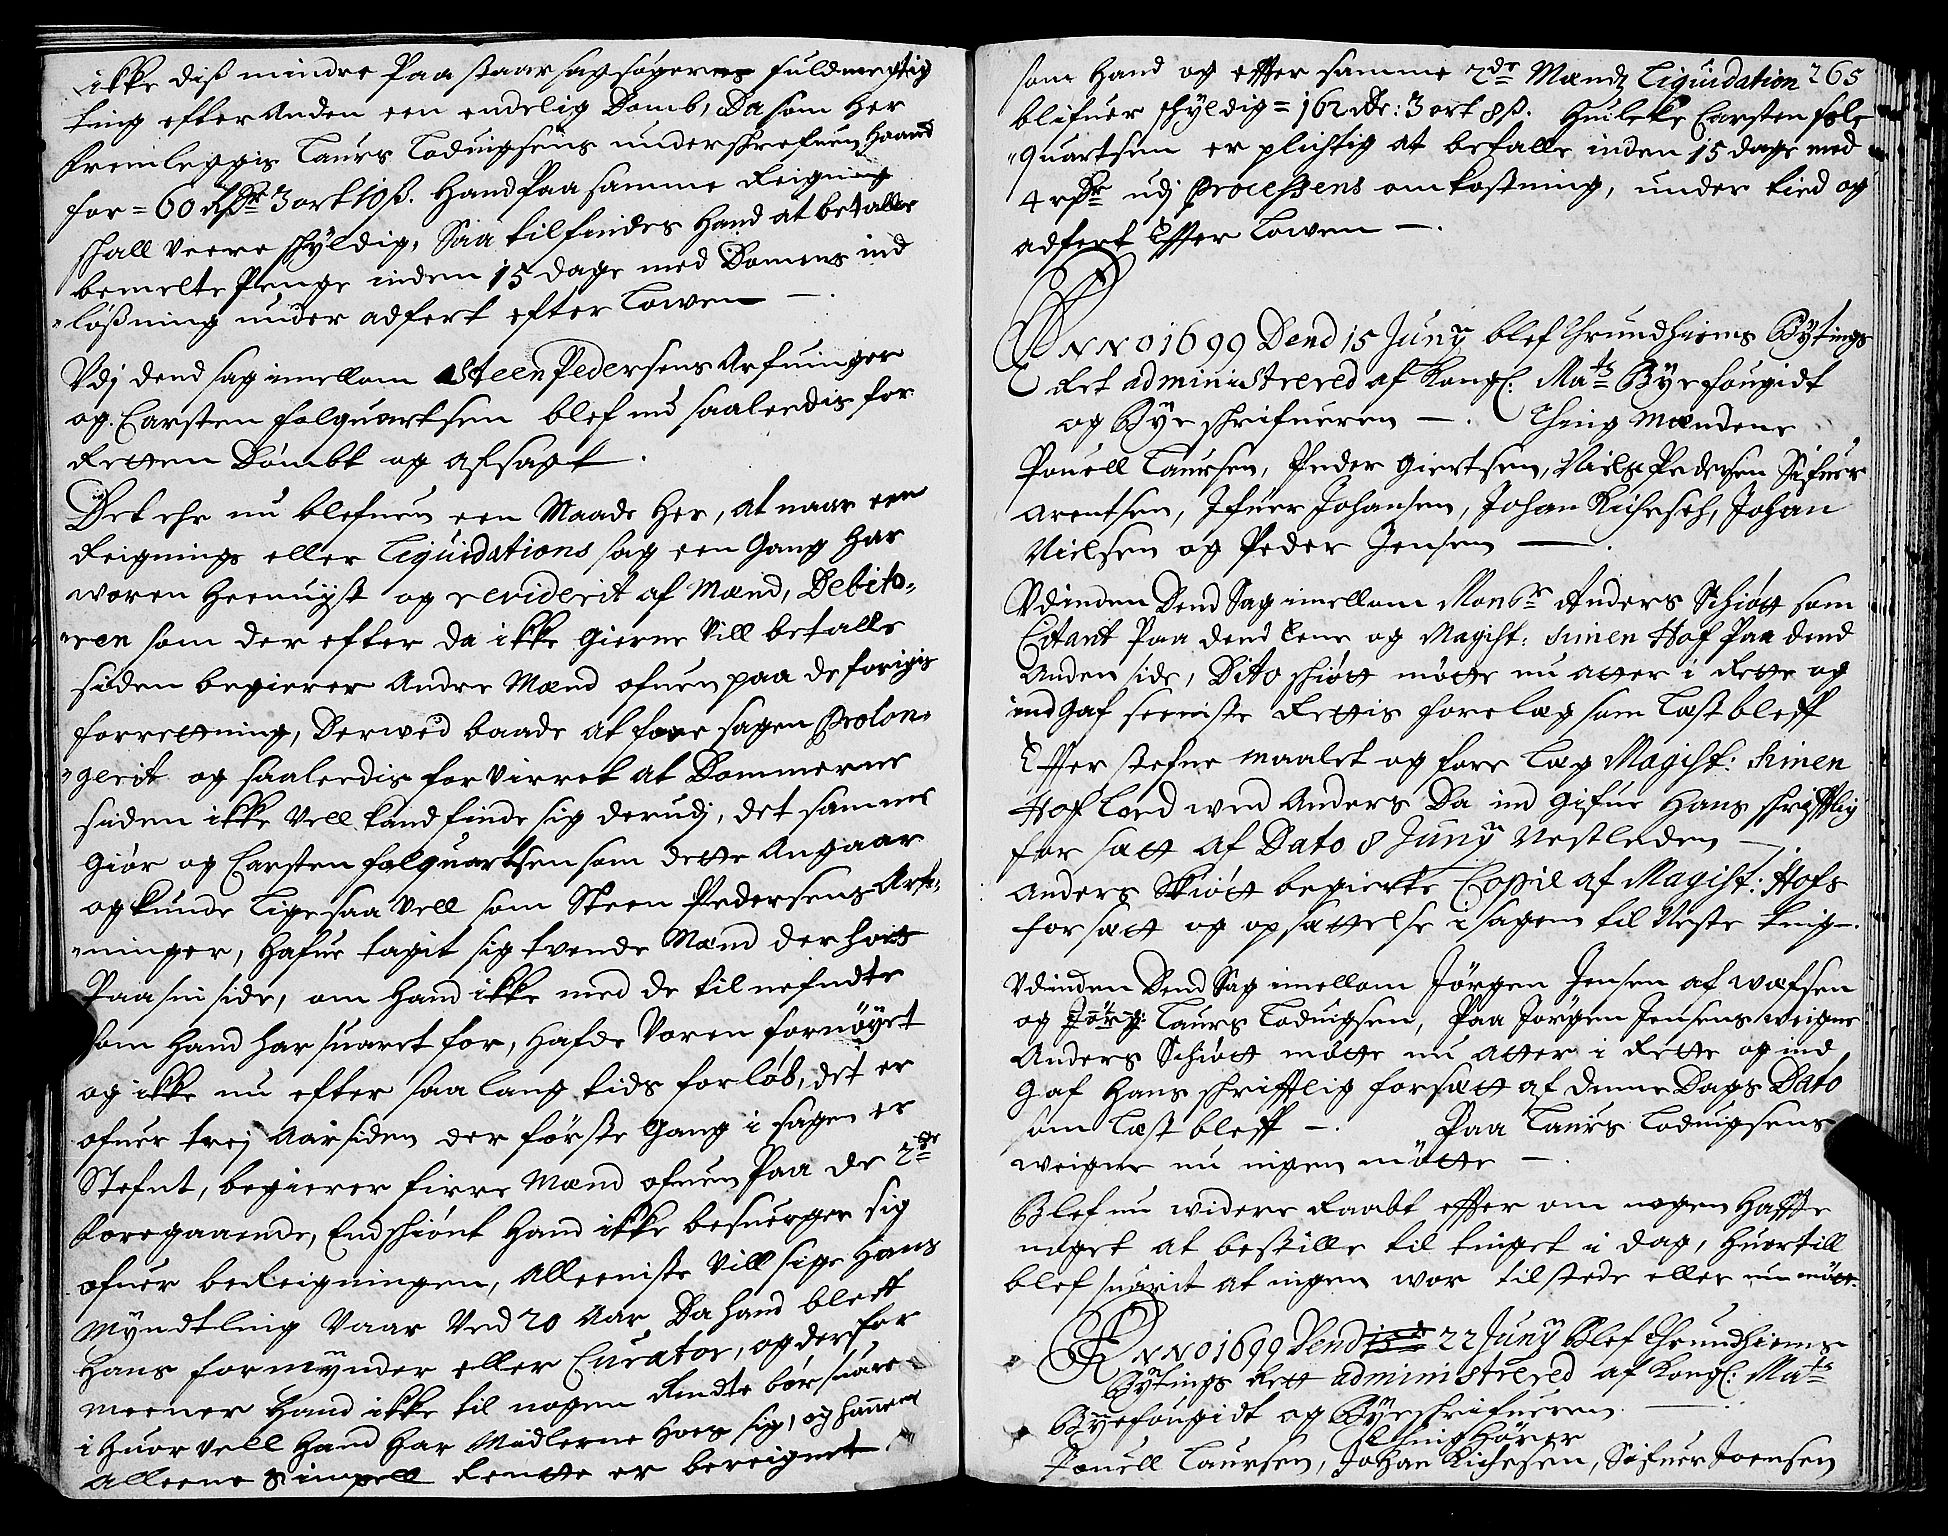 ikke diß mindre Paastaar sagsøgernes fuldmegtig
ting efter Anden een endelig Domb, Da som her
fremleggis Laurs Lodvigsens underskrefuen Haand
for = 60 Rdr 3 ort 10 ß. Hand Paa samme Reigning
skall veere skyldig, Saa tilfindes Hand at betalle
bemelte Penge inden 15 dage med Domens ind
"løßning under adfert efter Lowen —.
Vdj dend sag imellom Steen Pedersens Arfuinger
og Carsten folquartsen blef nu saaleedis for
Retten Dømbt og afsagt.
Det ehr nu blefuen een Maade her, at naar een
Reignings eller Liquidations sag een Gang har
woren Heenvijst og reviderit af Mænd, Debito=
"ren som der efter da ikke gierne vill betalle
siden begierer Andre Mænd ofuen paa de forigis
forretning, Derwed baade at faae sagen Prolon=
"gerit og saaleedis forvirret at Dommerne
siiden ikke vell kand finde sig derudj, det samme
Giør og Carsten folquartsen som dette Angaar
og kunde Ligesaa vell som Steen Pedersens Arfu=
"inger, hafue tagit sig tvende Mænd der hois
Paa sin side, om Hand ikke med de tilnefndte
som Hand har suaret for, hafde Voren fornøyet
og ikke nu efter saa lang tids forløb, det er
ofuer trej Aar siden der første Gang i sagen er
Stefnt, begierer firre Mænd ofuen Paa de 2de
foregaaende, Endskiønt Hand ikke besuerger sig
ofuer beReigningen, Alleeniste vill sige Hans
Myndtling Vaar Ved 20 Aar Da hand bleff
Hans formynder eller Curator, og derfor
meener Hand ikke til nogen Rendte bør suare
i Huor vell Hand har Midlerne Hoes sig, og hannem
Alleene Simpell Rentte er bereignet
som Hand og effter samme 2de Mændz Liquidation 265
blifuer skyldig = 162 Rdr: 3 ort 8 ß. Huilcke Carsten fole
"Quartsen er plichtig at betalle inden 15 dage med
4 rdr udj Processens omkostning, under tied og
adfert Effter Lowen —.
ANNO 1699 Dend 15 Junij blef Thrundhiems Bytings
Ret administrered af Kongl: Mats Byefougidt
og Byeskrifueren —. Thing Mændene
Pouell Laursen, Peder Giertsen, Niels Pedersen Sifuer
Arentsen, Ifuer Johansen, Johan Kichesch, Johan
Nielsen og Peder Jensen —.
Vdinden Dend Sag imellom Monsr Anders Schiøtt som
Citant Paa dend Eene og Magist: Simen Hof Paa dend
Anden side, Dito Schiøtt møtte nu atter i Rette og
indGaf seeniste Rettis forelæg som Læst bleff
Effter stefnemaalet og fore læg Magist: Simen
Hof loed wed Anders Da ind gifue Hans skrifftlig
forsætt af Dato 8 Junij Nestleden —
Anders Skiøtt begierte Copie af Magist: Hofs
forsætt og opsættelse i sagen til Neste ting —.
Vdinden Dend Sag imellom Jørgen Jensen af wæfsen
og Jørg: Laurs Lodvigsen, Paa Jørgen Jensens weigne
Anders Schiøtt møtte nu atter i Rette og ind
Gaf Hans skrifftlig forsætt af denne Dags Dato
som Læst bleff —. Paa Laurs Lodvigsens
weigne nu ingen møtte —.
Blef nu widere Raabt effter om nogen Haffde
noget at bestille til tinget i dag, Huortill
blef suarit at ingen war tilstede eller nu møtt.
ANNO 1699 Dend 22 Junij Blef Thrundhiems
Bytings Rett administrered af Kongl: Mats
Byefougidt og Byeskrifueren
Thing Hörer
Pouell Laursen, Johan Kichesen, Sifuer Joensen